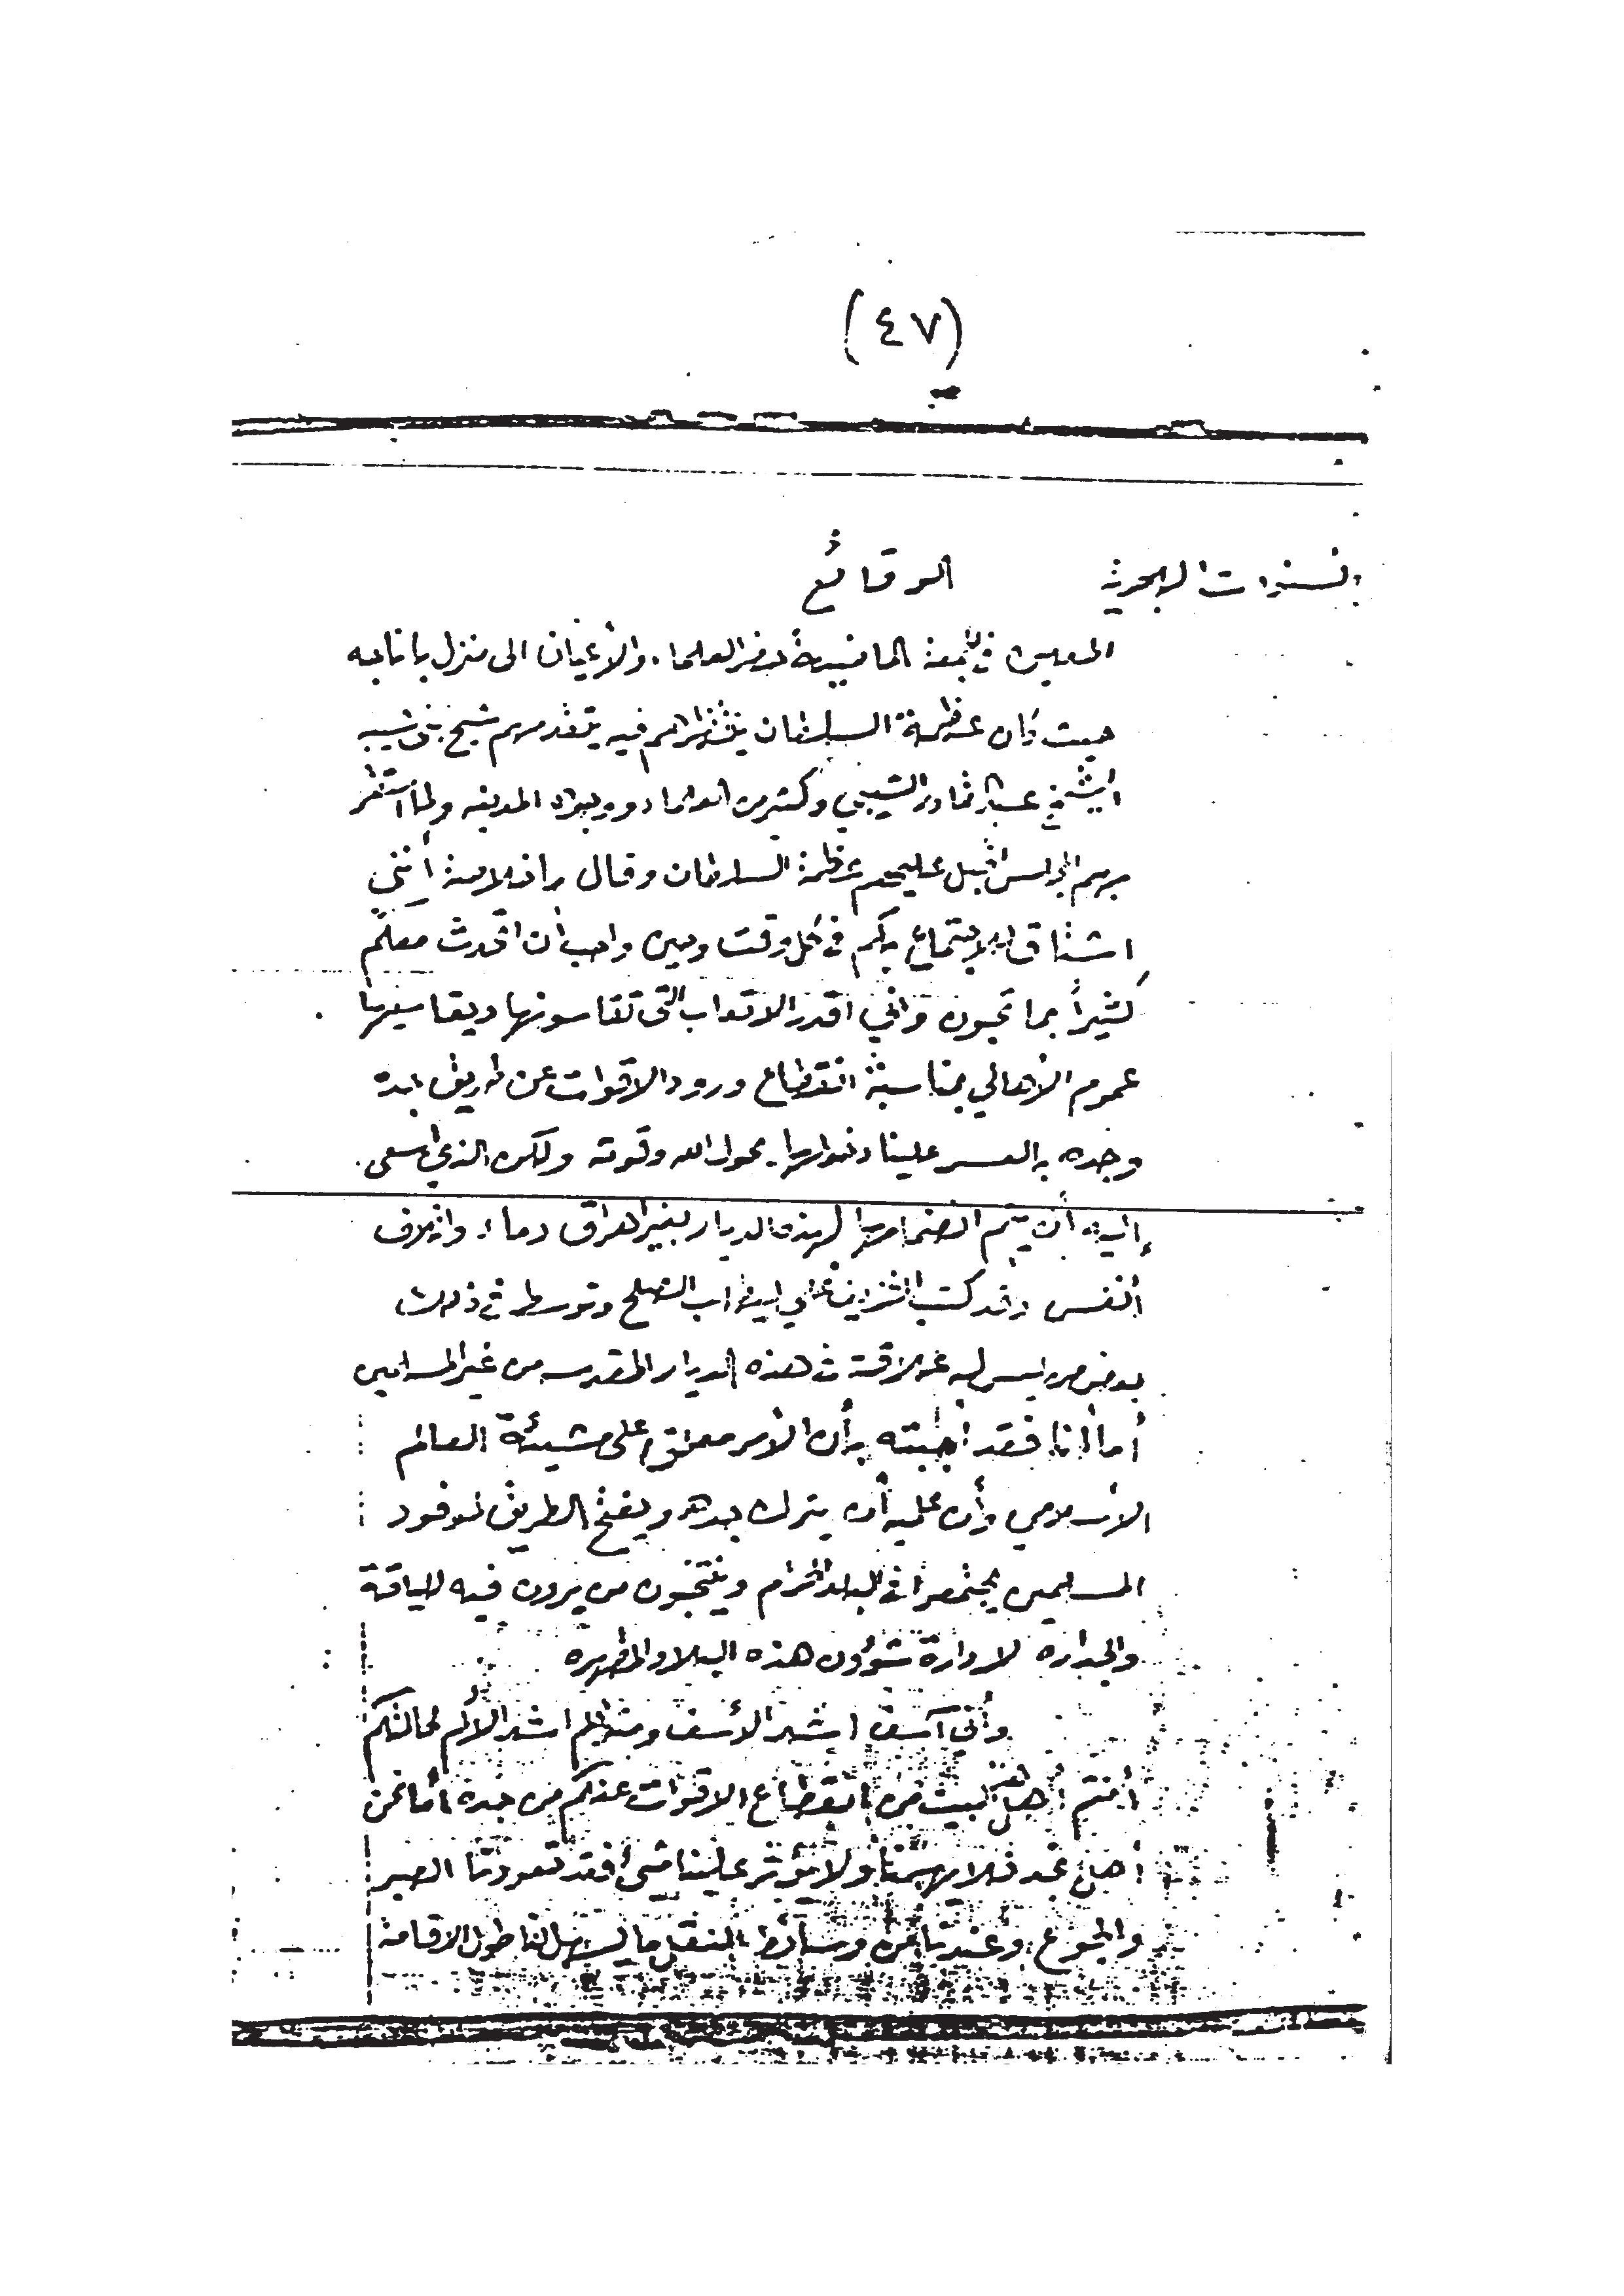 (٤٧)
السنوات الهجرية الوقائع
في الجمعة الماضية حضر العلماء والأعيان الى منزل باناجه
حيث كان عظمة السلطان ينتظرهم فيه يتقدمهم شيخ بني شيبه
الشيخ عبدالقادر الشيبي وكثير من العلماء ووجهاء المدينه ولما استقر
بهم المجلس اقبل عليهم عظمة السلطان وقال إنني
اشتاق للاجتماع بكم في كل وقت وحين واحب أن اتحدث معكم
كثيراً بما تحبون وانني اقدر الاتعاب التي تقاسونها ويقاسيها
عموم الأهالي بمناسبة انقطاع ورود الاقوات عن طريق جدة
وجده العسر علينا بحول الله وقوته ولكن الذي اسعى
إليه أن يتم انضمامها لهذه الديار بغير اهراق دماء واتلاف
أنفس وقد كتب الشريف علي الصلح وتوسط في ذلك
بعض من ليس له علاقة في هذه الديار المقدسه من غير المسلمين
أما أنا فقد أجبته بأن الأمر معلق على مشيئة العالم
الأسلامي وأن عليه أن يترك جده ويفتح الطريق لوفود
المسلمين يجتمعوا في البلد الحرام وينتخبون من يرون فيه اللياقة
والجداره لادارة شؤون هذه البلاد المطهره
وأني آسف اشد الأسف ومتألم اشد الألم لحالتكم
أنتم أهل البيت من انقطاع الاقوات عنكم من جدة أما نحن
أهل نجد فلا يهمنا ولا يؤثر علينا شئ فقد تعودنا الصبر
والجوع وعندنا من وسائط النقل ما يسهل لنا طول الاقامة